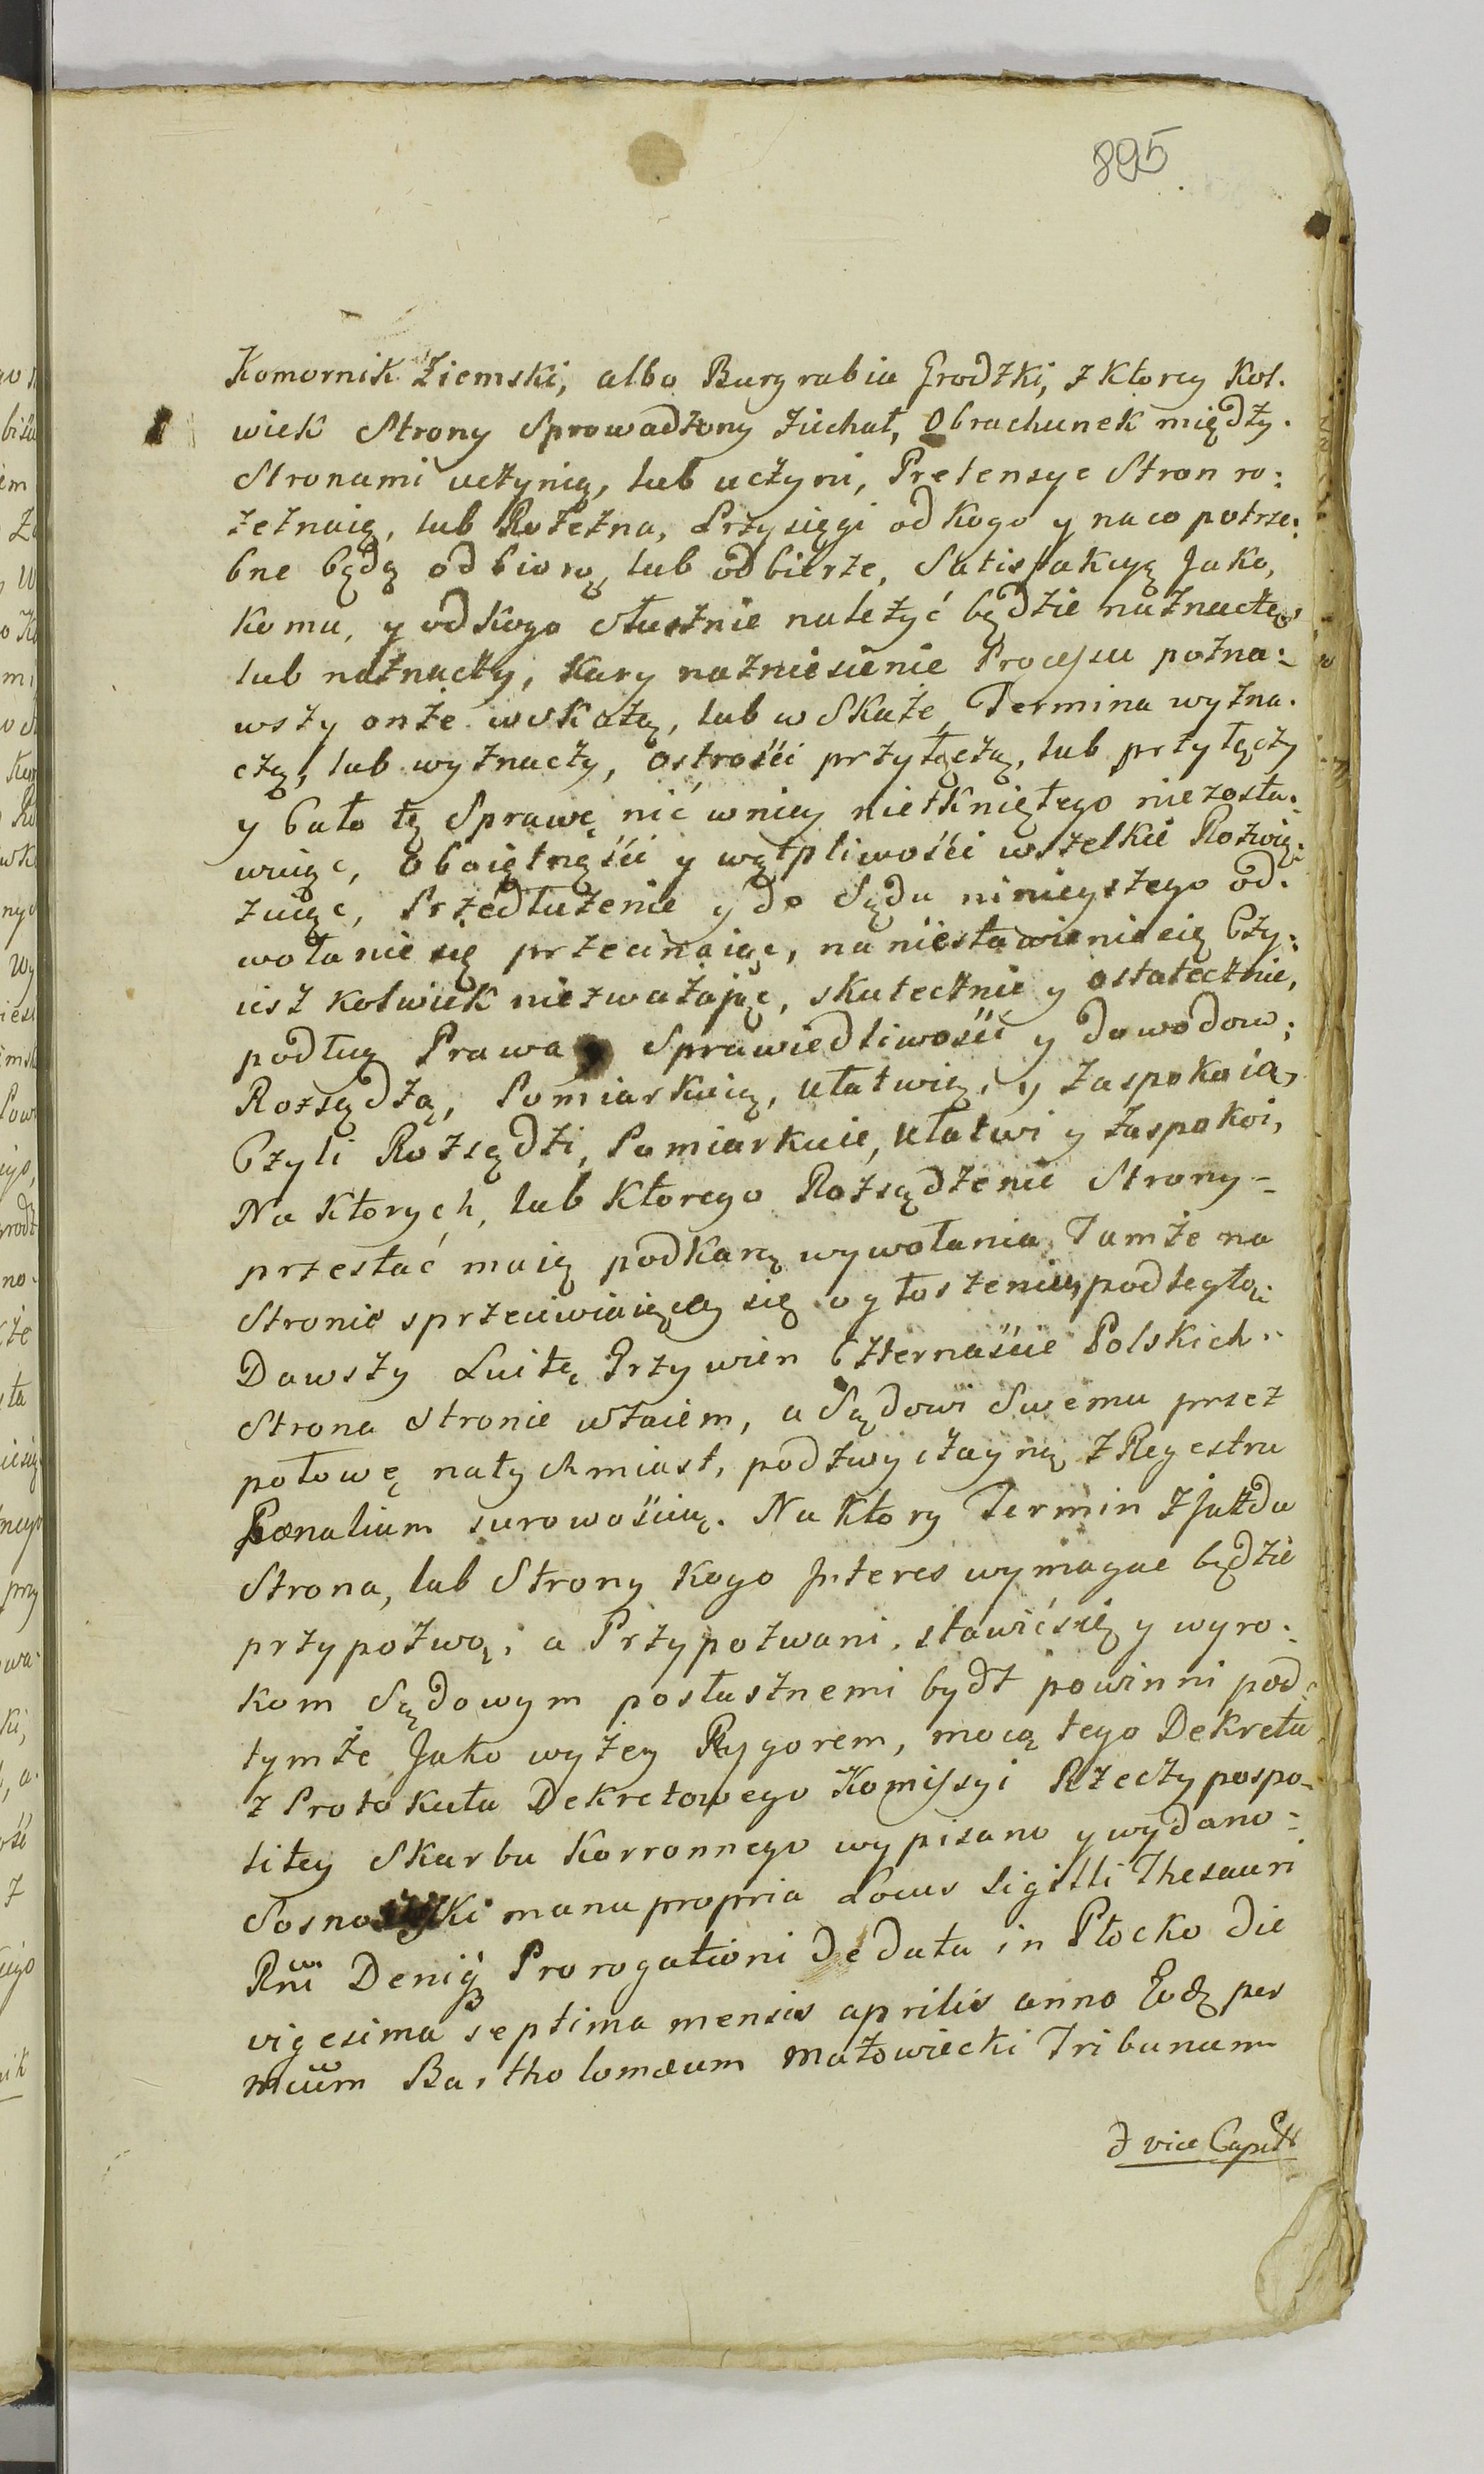 895
Komornik Ziemski, albo Burgrabia Grodzki, z Ktorey Kol.
wiek Strony Sprowadzony ziechał, Obrachunek między.
Stronami uczynią, lub uczyni, Pretensye Stron ro:
zeznaią, lub Rozezna, Przysięgi od Kogo y na co potrze:
bne będą odbiorą, lub odbierze, Satisfakcyą Jako,
Komu, y od Kogo Słusznie należyć będzie naznaczą,
lub naznaczy, Kary na zniesienie Processu pozna:
wszy onże wskażą, lub wskaże, Termina wyzna.
czą, lub wyznaczy, ostrości przyłączą, lub przyłączy
y Cało tę Sprawę nic w niey nietkniętego nie zosta:
wuiąc, Oboiętności y wątpliwości wszelkie Rozwią:
zuiąc, Przedłużenie y do Sądu ninieyszego od.
wołanie się przecinaiąc, na niestawienie się Czy:
iesz kolwiek niezważając, skutecznie y ostatecznie,
podług Prawa Sprawiedliwości y dowodow;
Rozsądzą, Pomiarkuią, Ułatwią, y Zaspokoią,
Czyli Rozsądzi, Pomiarkuie, Ułatwi y Zaspokoi,
Na Ktorych, lub Ktorego Rozsądzenie Strony-
przestać maią pod Karą wywołania Tamże na
Stronie sprzeciwiaiącey się ogłoszeniu podległą:
Dawszy Luitę Przywien Czternaście Polskich
Strona Stronie wzaiem, a Sądowi Swemu przez
połowę natychmiast, pod zwyczayną z Regestru
Pœnalium surowością. Na Ktory Termin Zjazdu
Strona, lub Strony Kogo Interes wymagac będzie
przypozwą, a Przypozwani, stawić się y wyro:
kom Sądowym posłusznemi bydz powinni pod
tymże Jako wyżey Rygorem, mocą tego Dekretu
z Protokułu Dekretowego Komissyi Rzeczypospo-
litey Skarbu Korronnego wypisano y wydano:
manu propria Locus Sigilli Thesauri
Rni Prorogationi De data in Płocko die
vigesima septima mensis aprilis anno Eod per
Bartholomæum Małowiecki Tribunum
vice